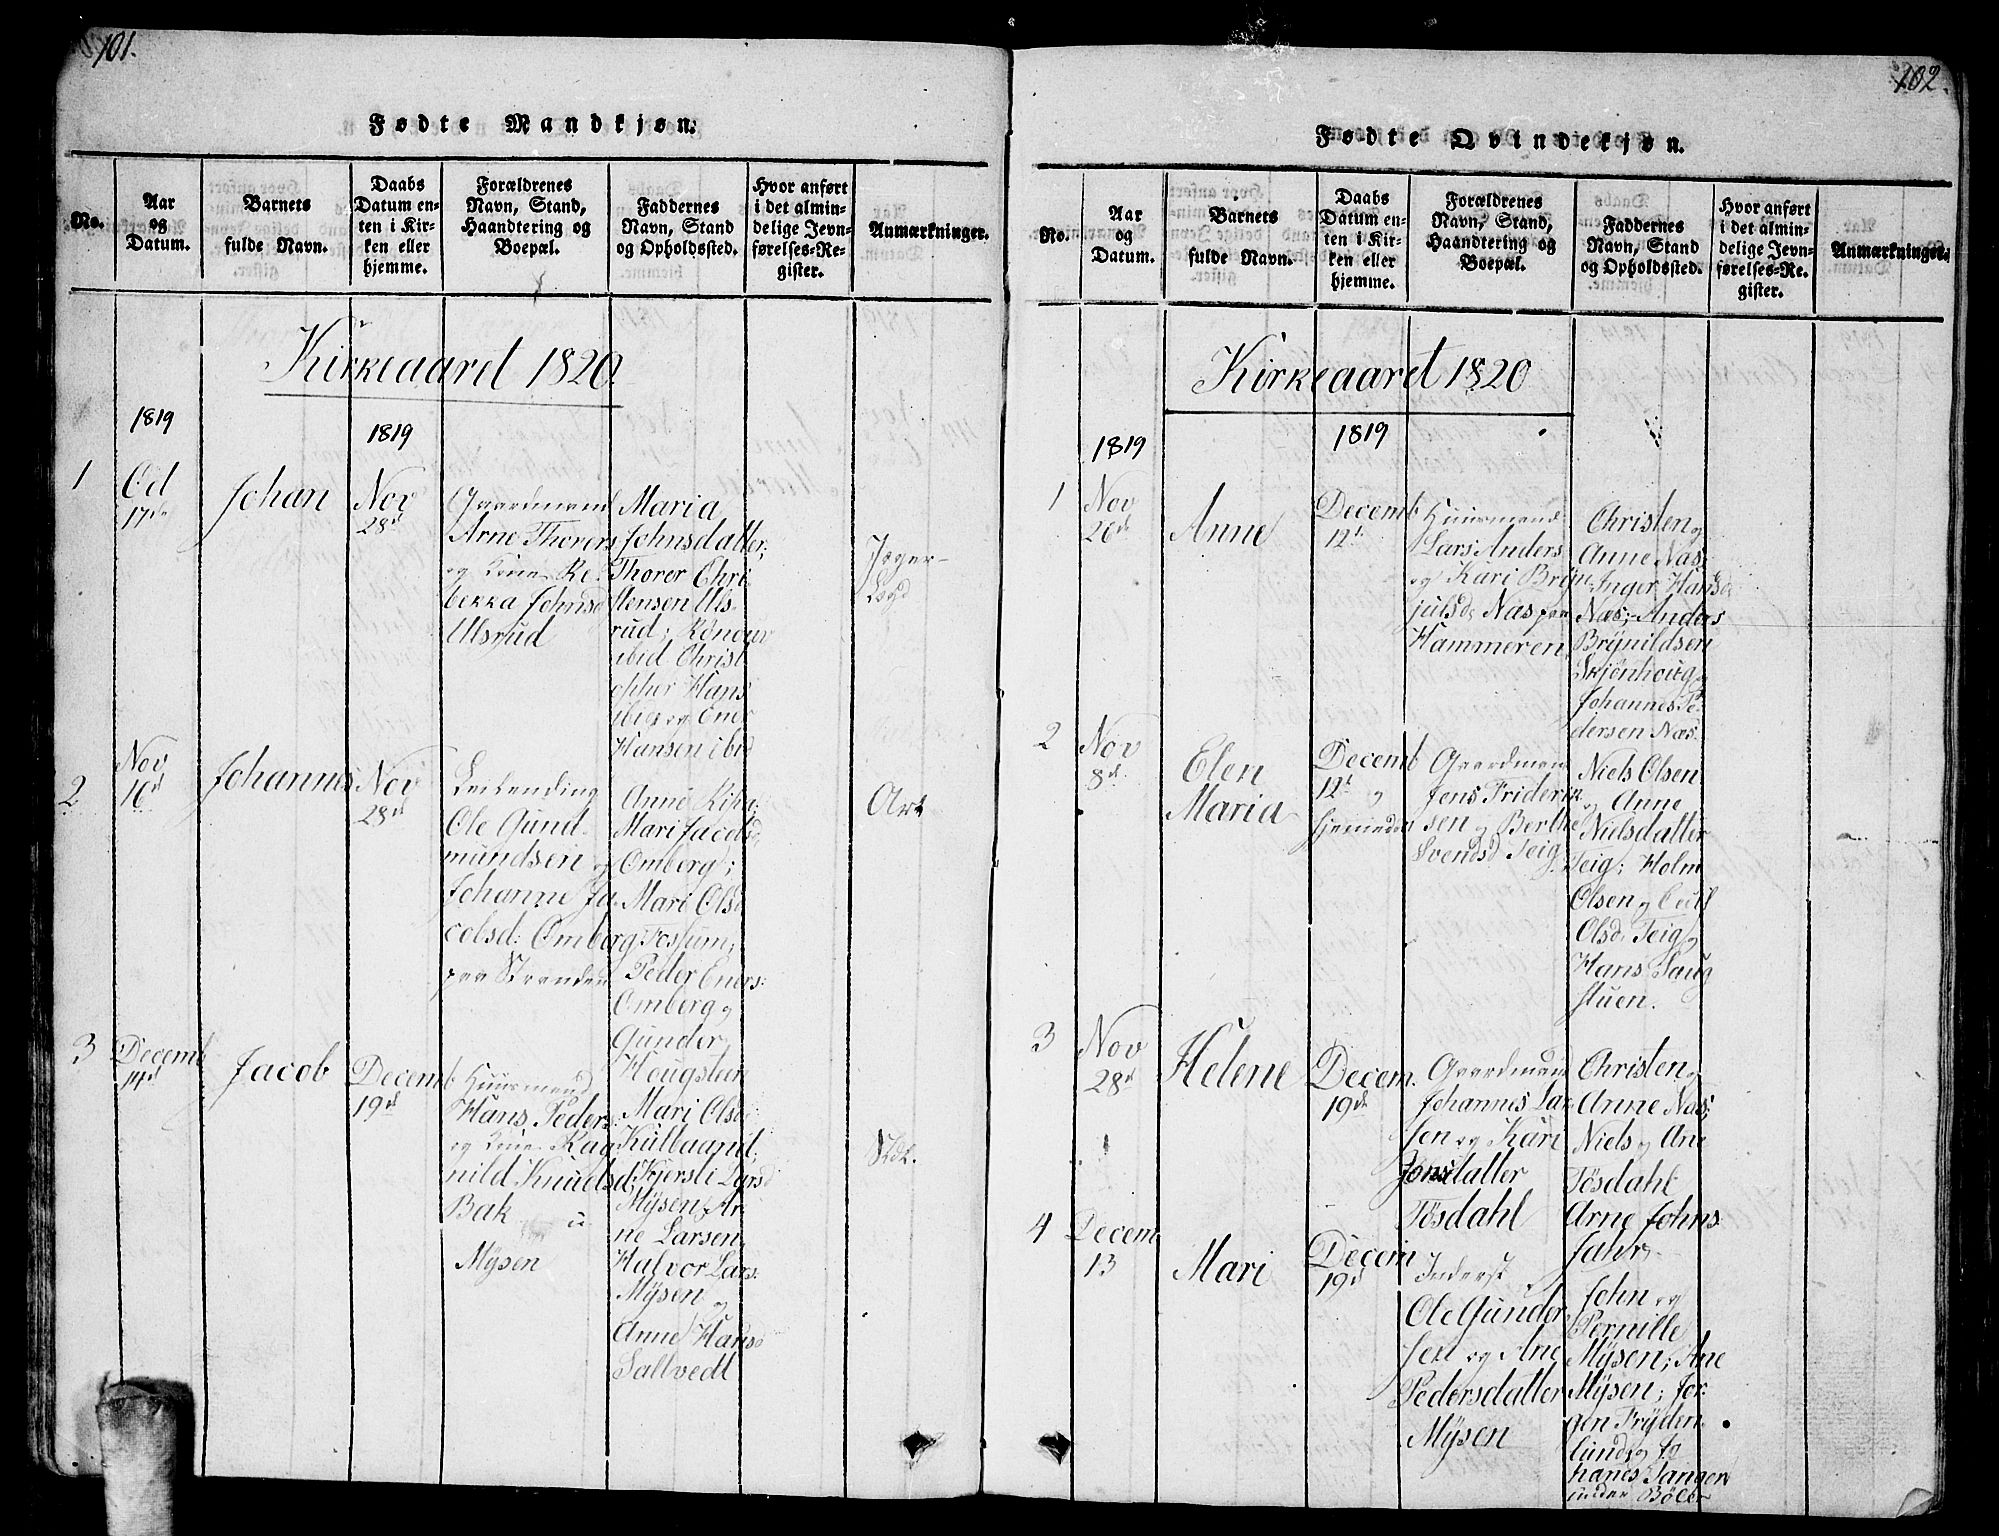 101.
Fødte Mandkjøn.
No.
Aar
og
Datum.
Barnets
fulde Navn.
Daabs
Datum en-
ten i Kir-
ken eller
hjemme.
Forældrenes
Navn, Stand,
Haandtering og
Boepæl.
Faddernes
Navn, Stand
og Opholdssted.
Hvor anført
i det almin-
delige Jevn-
førelses-Re-
gister.
Anmærkninger.
Kirkeaaret 1820.
1819
1819
1
Oct
17de
Johan
Nov
28d
Gaardmand
Arne Thorers
og Kone Re-
bekka Johnsd
Ulsrud
Maria
Johnsdatter;
Thorer Chri
stensen Uls-
rud; Rönouv
ibid Christ
opher Hans
ibid og Ener
Hansen ibid
Jæger-
2
Nov
16d
Johannes
Nov
28d
Leilending
Ole Gund-
mundsen og
Johanne Ja-
cobsd: Omberg
paa Stranden
Anne
Mari Jacobsd,
Omberg;
Mari Olsd
Fossum;
Peder Eners:
Omberg og
Gunder
Hougsteen
Art
3
Decemb
14d
Jacob
Decemb
19d
Huusmand
Hans Peders:
og Kone Rag
nild Knudsd
Bak u
Mÿsen
Mari Olsd
Kullaand;
Kjersti Larsd
Mÿsen; Ar-
ne Larsen,
Halvor Lars:
Mÿsen og
Anne Hansd
Saltvedt
102.
Fødte Qvindekjøn.
No.
Aar
og
Datum.
Barnets
fulde Navn.
Daabs
Datum en-
ten i Kir-
ken eller
hjemme.
Forældrenes
Navn, Stand,
Haandtering og
Boepæl.
Faddernes
Navn, Stand
og Opholdssted.
Hvor anført
i det almin-
delige Jevn-
førelses-Re-
gister.
Anmærkninger.
Kirkeaaret 1820
1819
1819
1
Nov
26d
Anne
Decemb
12t
Huusmand
Lars Anders
og Kari Brÿn-
julsd: Nas paa
Hammeren
Christen og
Anne Nas;
Inger Hansd
Næs; Anders
Brÿnildsen
Skjönhoug og
Johannes Pe-
dersen Næs.
2
Nov
8d.
Elen
Maria
Decemb
12t og
hjemmedøbt
Gaardmand
Jens Friderik
sen og Berthe
Svendsd Teig
Niels Olsen
og Anne
Nielsdatter
Teig; Holm
Olsen og
Olsd. Teig og
Hans Saug
stuen.
3
Nov
28d
Helene
Decem.
19d
Gaardmand
Johannes Lar
sen og Kari
Jonsdatter
Tösdahl
Christen og
Anne Nas;
Niels og Ane
Tösdahl
Arne Johns
Jahr.
4
Decem
13
Mari
Decem
19d
Inderst
Ole Gunder
sen og Ane
Pedersdatter
Mÿsen
John og
Pernille
Mÿsen; Ane
Mÿsen; Jör-
gen Frÿden-
lund og Jo
hanes Tangen
under Böler